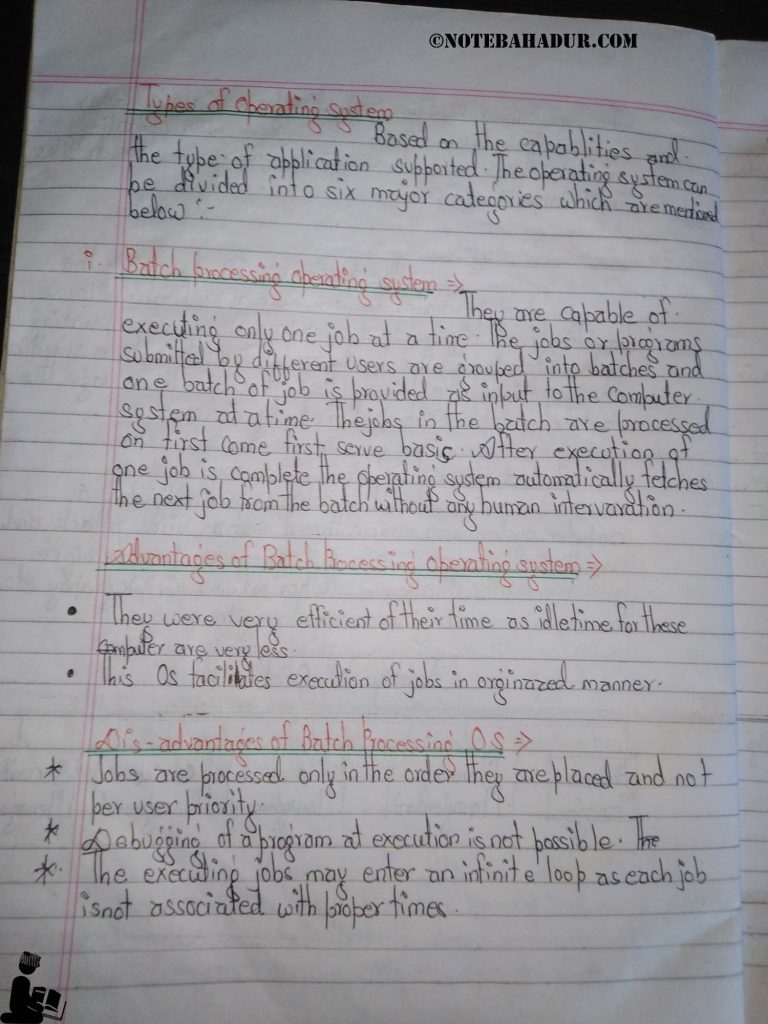 ©NOTEBAHADUR.COM
Types of operating system
Based on the capablities and.
the type of application supported. The operating system can
be divided into six major categories which are mentioned
below :-
i. Batch processing operating system ⇒
They are capable of.
executing only one job at a time. The jobs or programs
submitted by different users are grouped into batches and
one batch of job is provided as input to the computer.
system at a time. The jobs in the batch are processed
on first come first serve basis. After execution of
one job is complete the operating system automatically fetches
the next job from the batch without any human intervaration.
Advantages of Batch Processing operating system ⇒
• They were very efficient of their time as idle time for these
computer are very less.
• This Os facilitates execution of jobs in orginazed manner.
Dis-advantages of Batch Processing OS ⇒
* Jobs are processed only in the order they are placed and not
per user priority.
* Debugging of a program at execution is not possible. The
* The executing jobs may enter an infinite loop as each job
is not associated with proper times.